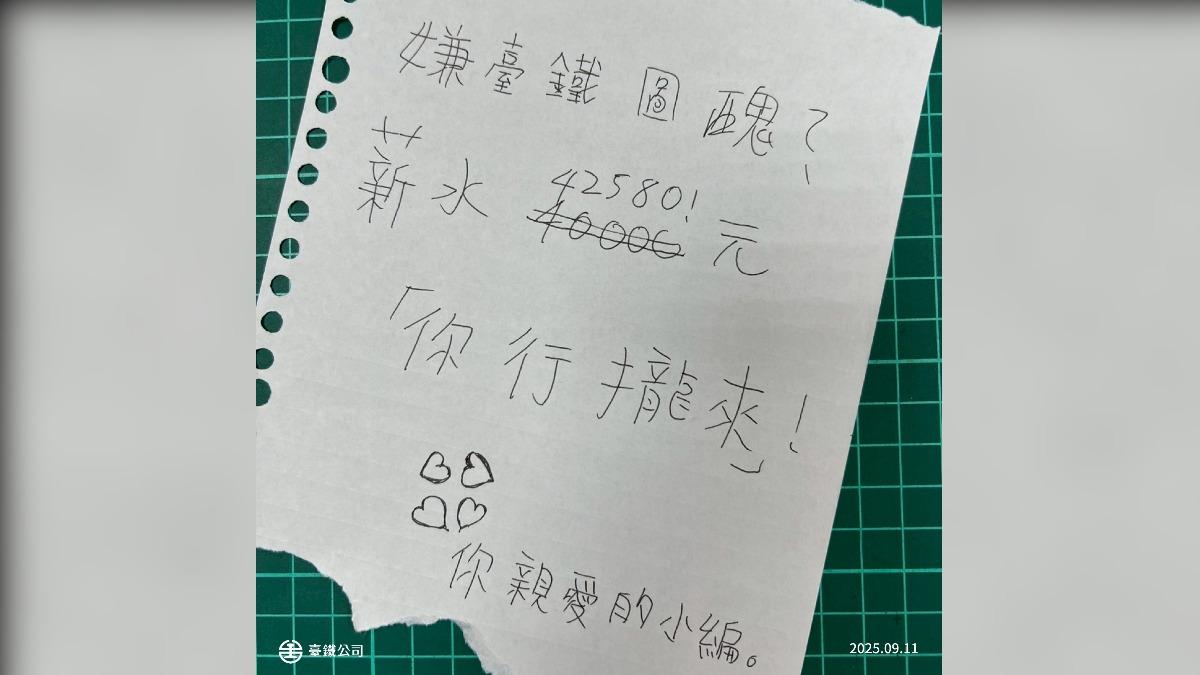 嫌臺鐵圖醜？
42580!
薪水 40000 元
「你行攏來！
」
你親愛的小編。
臺鐵公司
2025.09.11